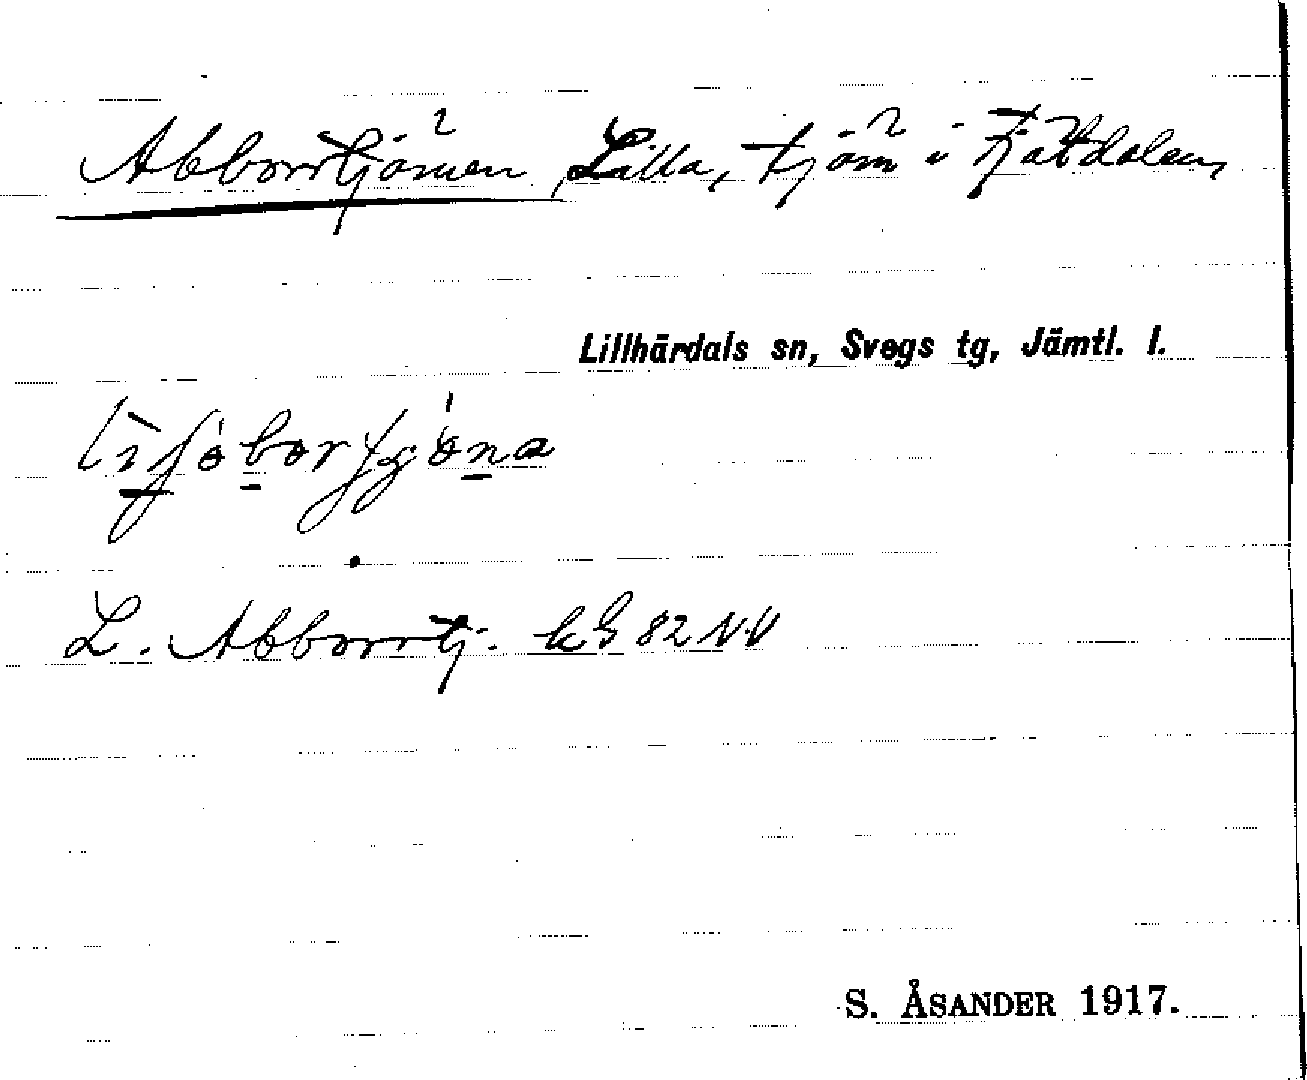 Abborrtjärnen, Lilla, tjärn i Fjätdalen,
Lillhärdals sn, Svegs tg, Jämtl. l.
L. Abborrtj. kG 82 N.V
S. ÅSANDER 1917.